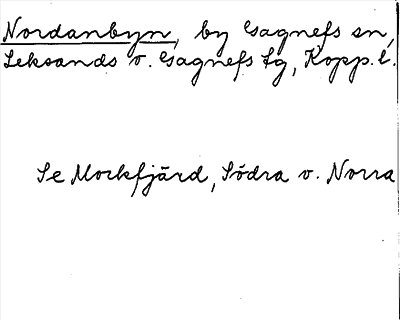 Nordanbyn, by Gagnefs sn,
Leksands o. Gagnefs tg, Kopp. l.
Se Mockfjärd, Södra o. Norra